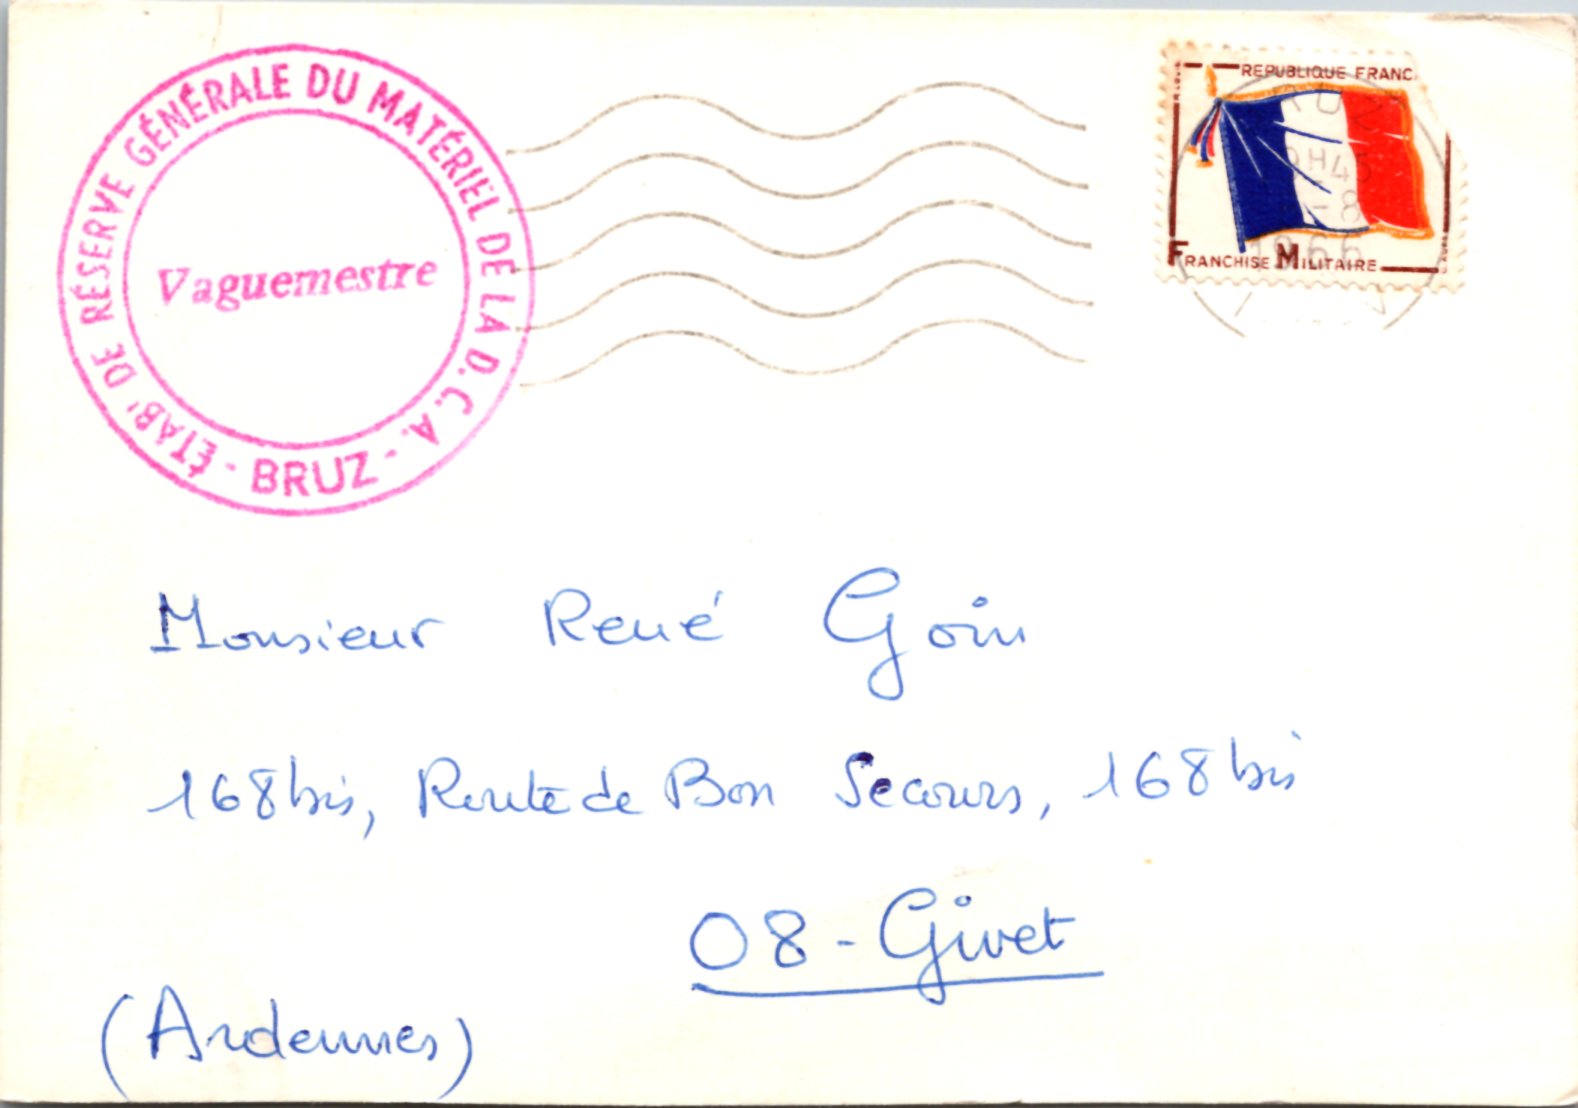 ÉTABᵗ DE RÉSERVE GÉNÉRALE DU MATÉRIEL DE LA D.C.A.
- BRUZ -
Vaguemestre
REPUBLIQUE FRANC
H45
-8
1966
FRANCHISE MILITAIRE
Monsieur René Goin
168bis, Route de Bon Secours, 168bis
08 - Givet
(Ardennes)